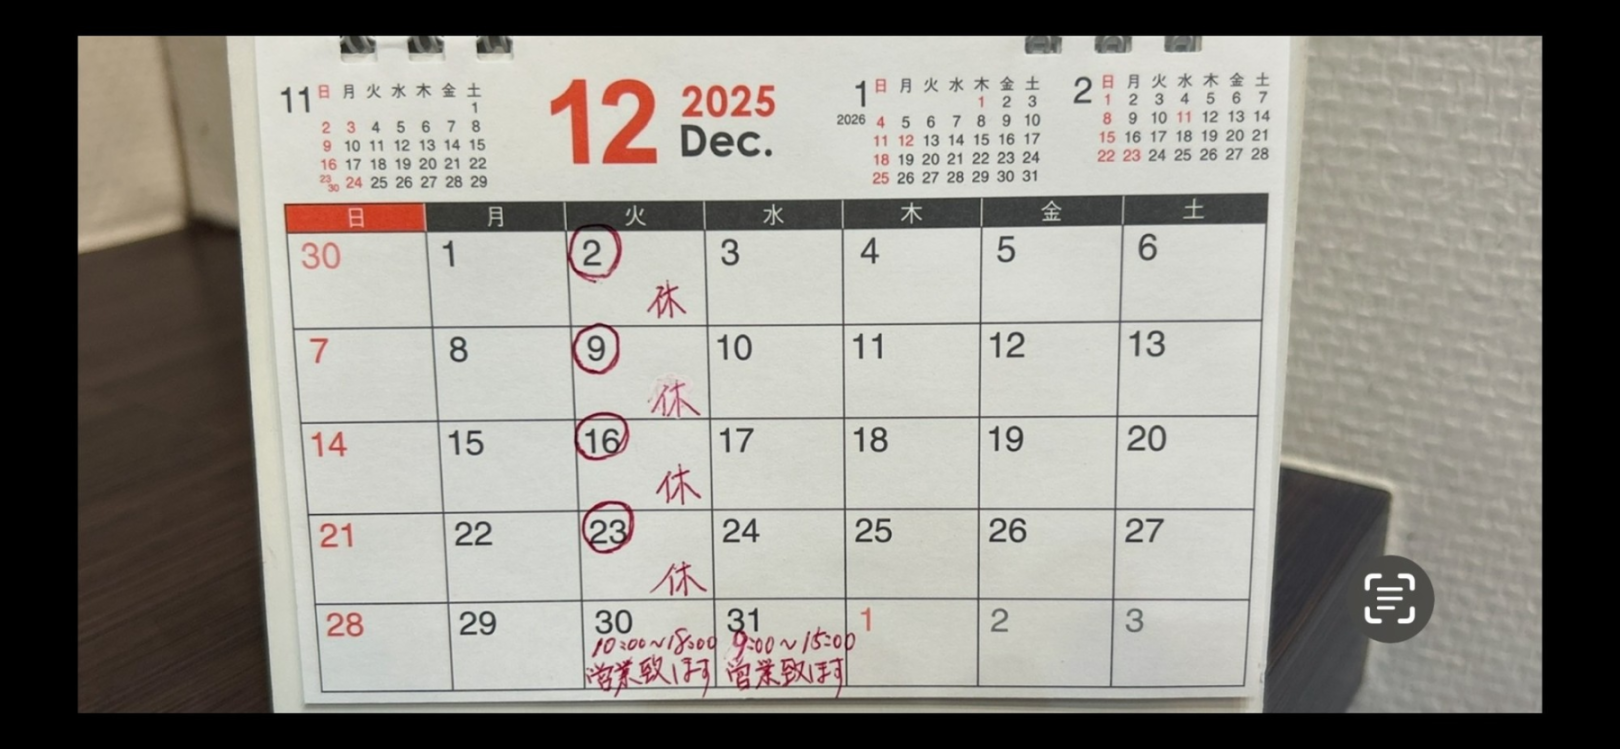 11
日 月 火 水 木 金 土
1
2 3 4 5 6 7 8
9 10 11 12 13 14 15
16 17 18 19 20 21 22
23 30 24 25 26 27 28 29
12
2025
Dec.
1
2026
日 月 火 水 木 金 土
1 2 3
4 5 6 7 8 9 10
11 12 13 14 15 16 17
18 19 20 21 22 23 24
25 26 27 28 29 30 31
2
日 月 火 水 木 金 土
1 2 3 4 5 6 7
8 9 10 11 12 13 14
15 16 17 18 19 20 21
22 23 24 25 26 27 28
日 月 火 水 木 金 土
30 1 2 3 4 5 6
休
7 8 9 10 11 12 13
休
14 15 16 17 18 19 20
休
21 22 23 24 25 26 27
休
28 29 30 31 1 2 3
10:00~18:00 9:00~15:00
営業致します 営業致します